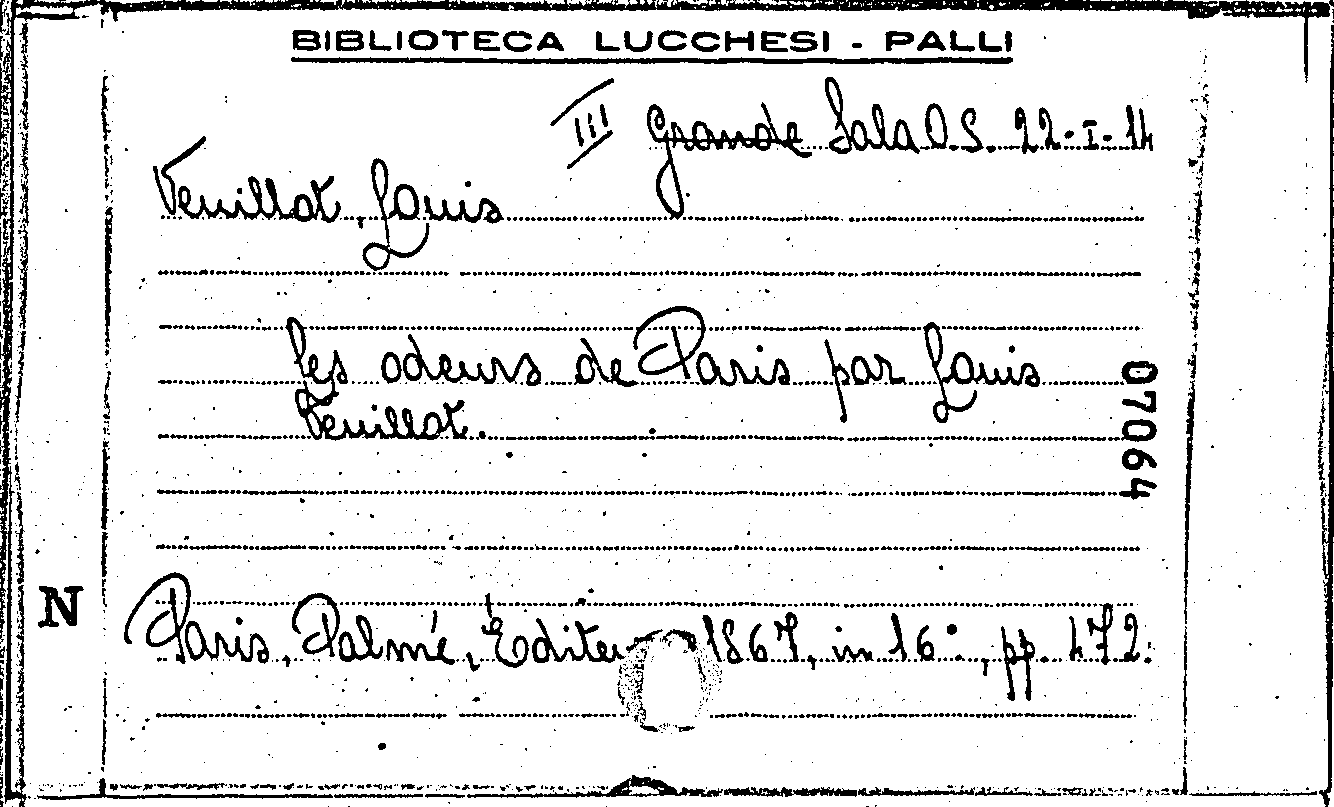 BIBLIOTECA LUCCHESI - PALLI
III Grande Sala O.S. 22-I-14
Veuillot, Louis
Les odeurs de Paris par Louis
Veuillot.
07064
N
Paris, Palmé, Éditeur 1867, in 16°, pp. 472.